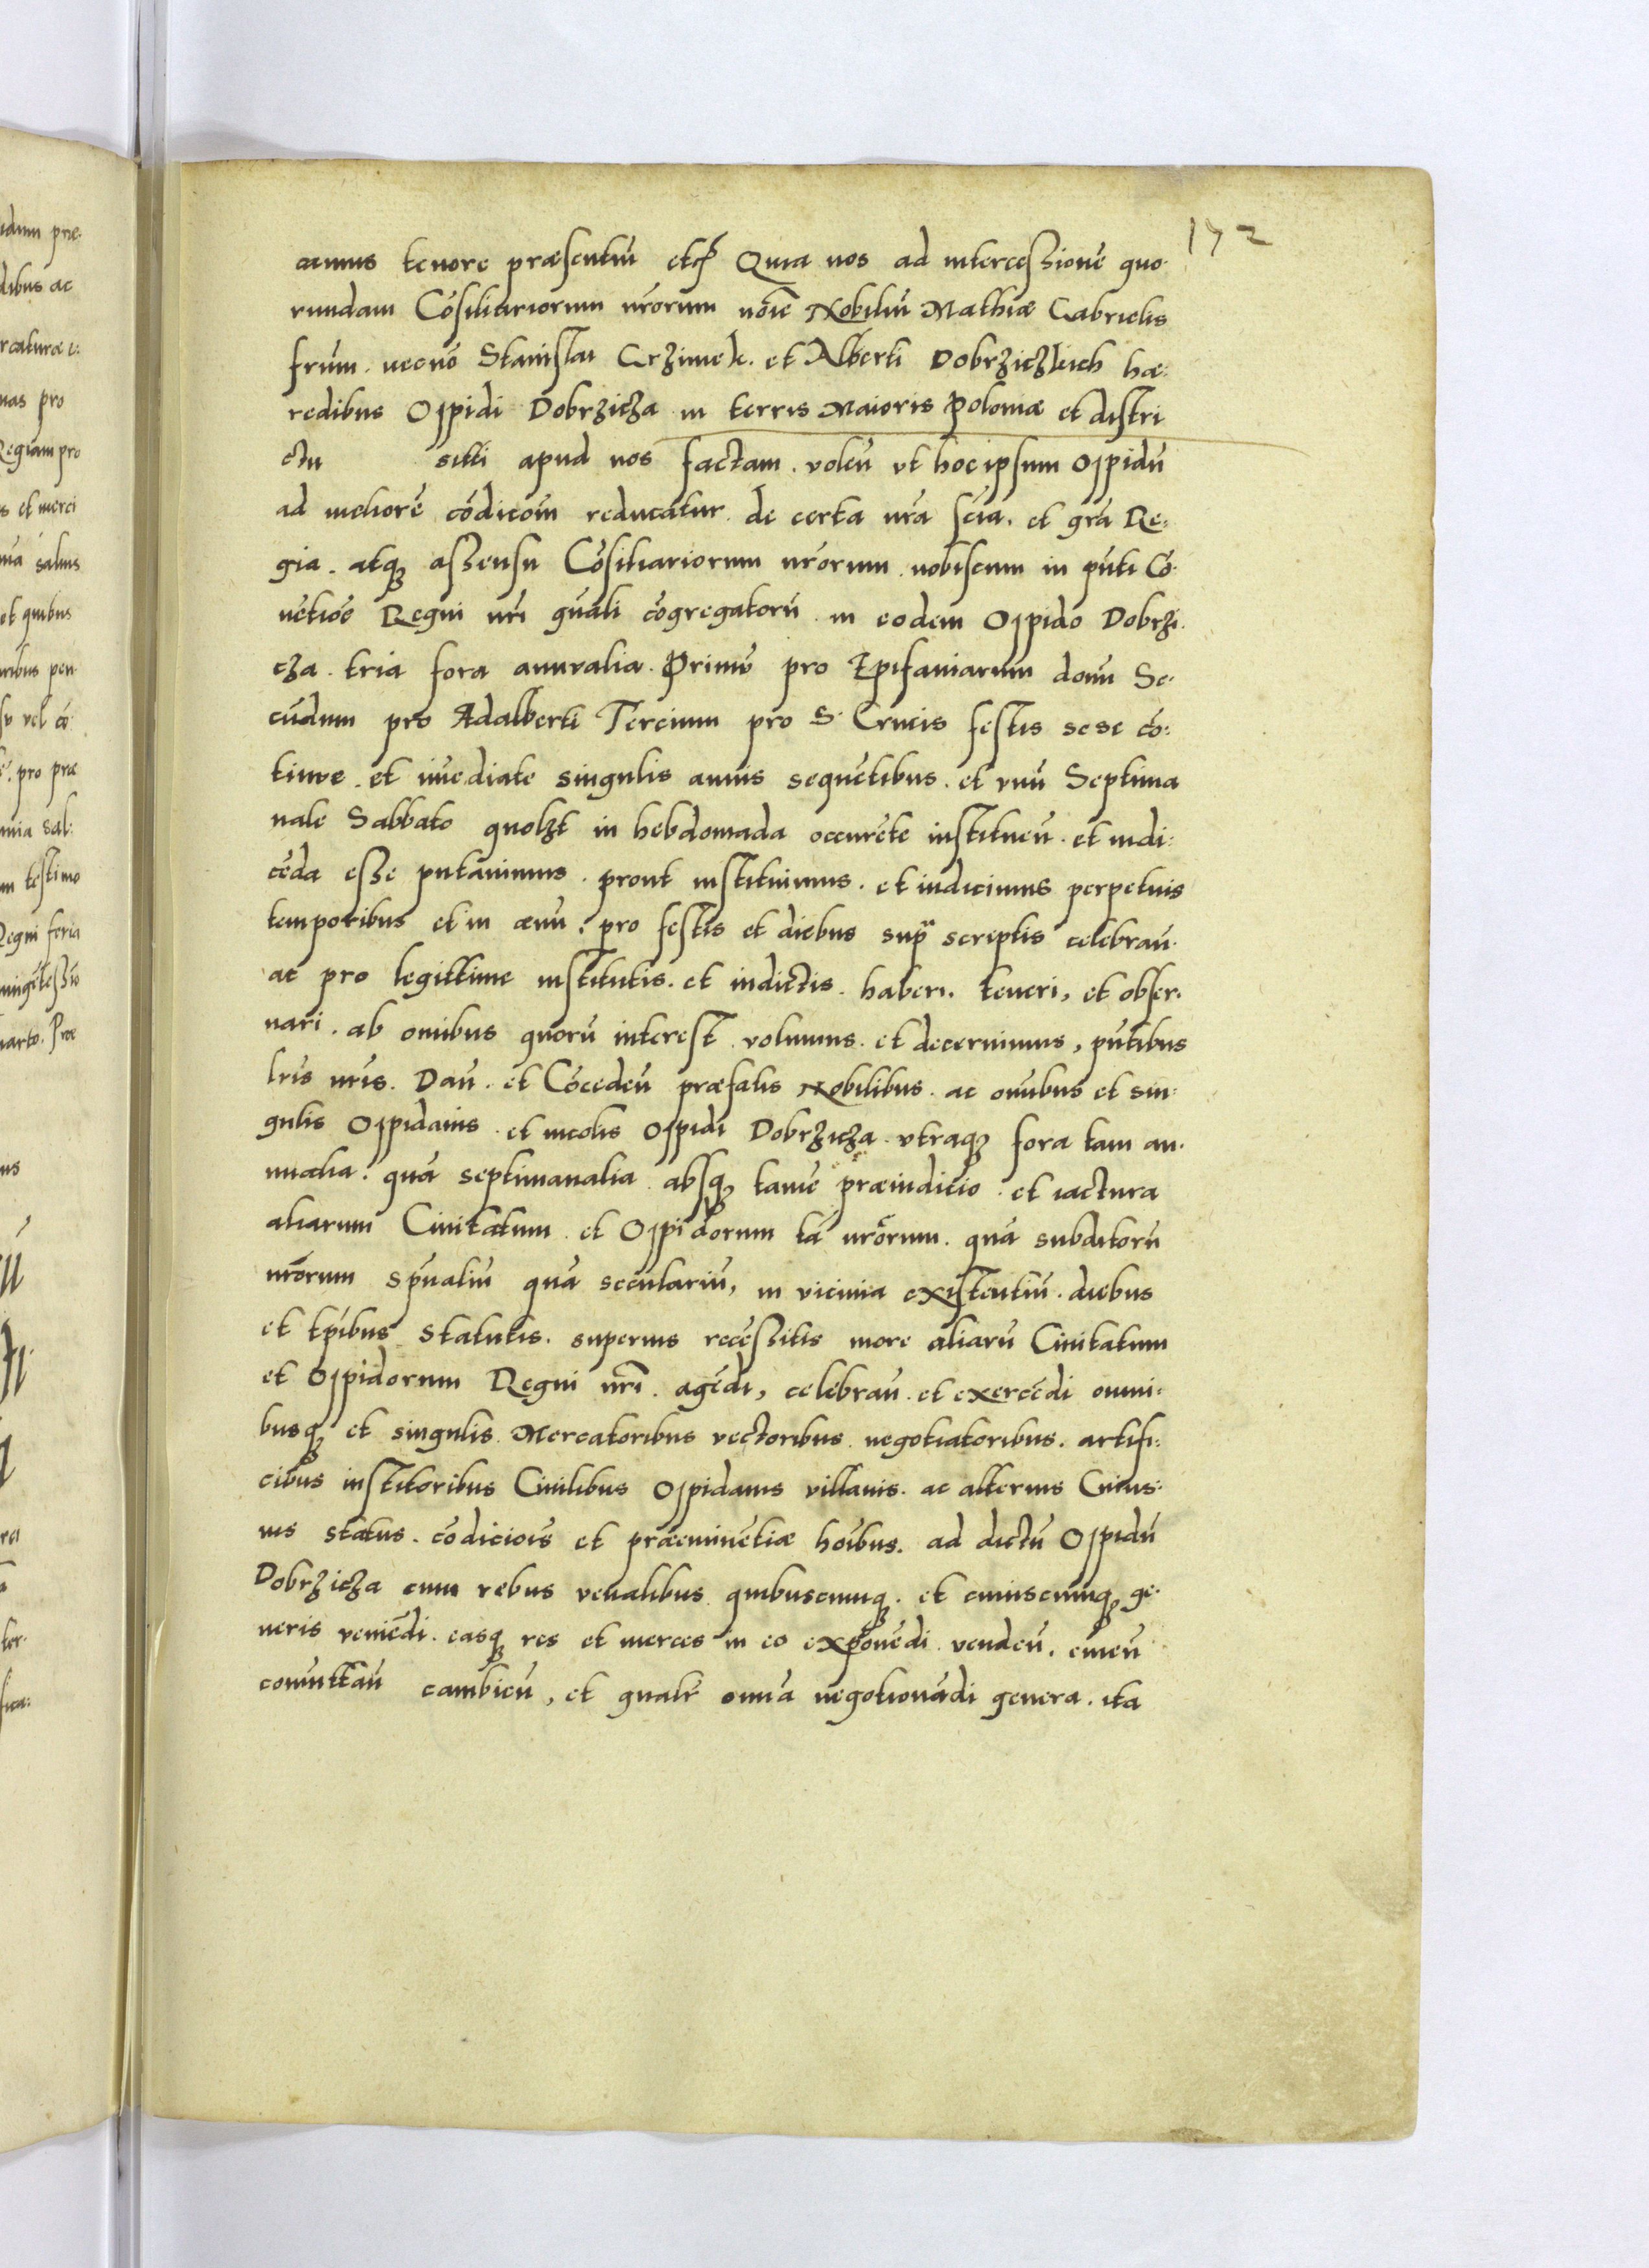 172
camus tenore præsentiū etc̃ Quia nos ad intercessionē quo-
rundam Cōsiliariorum nrōrum noīe Nobiliū Mathiæ Gabrielis
frūm. necnō Stanislai Crzimek. et Alberti Dobrziczkich hæ:
redibus Oppidi Dobrzicza in terris Maioris Poloniæ et distri
ctu sitti apud nos factam. voleñ vt hoc ipsum Oppidū
ad meliorē cōdicoīm reducatur. de certa nrā sciā. et grā Re:
gia. atq3 assensu Cōsiliariorum nrōrum. nobiscum in pn̄ti Cō-
vētiōe Regni nrī gn̄ali cōgregatorū in eodem Oppido Dobrzi-
cza. tria fora annualia. Primū pro Epifaniarum domī Se-
cūdum pro Adalberti Tercium pro S. Crucis festis sese cō:
tinue. et im̄ediate singulis annis sequētibus. et vnū Septima
nale Sabbato quolz3t in hebdomada occurēte institueñ. et indi:
cēda esse putavimus. prout instituimus. et indicimus perpetuis
temporibus et in ævū. pro festis et diebus supra scriptis celebrañ.
ac pro legittime institutis. et indictis. haberi. teneri, et obser.
vari. ab omībus quorū interest. volumus. et decernimus, pn̄tibus
lris nris. Dañ. et Cōcedeñ præfatis Nobilibus. ac om̄ibus et sin-
gulis Oppidanis. et incolis Oppidi Dobrzicza. vtraq3 fora tam an-
nualia. quā septimanalia. absq3 tamē præiudicio. et iactura
aliarum Civitatum. et Oppidorum tā nrōrum. quā subditorū
nrōrum sp̄ualiū quā seculariū, in vicinia existentiū. diebus
et tp̄ibus statutis. superius recēssitis more aliarū Civitatum
et Oppidorum Regni nrī. agēdi, celebrañ. et exercēdi omni:
busq3 et singulis. Mercatoribus vectoribus. negotiatoribus. artifi:
cibus institoribus Civilibus Oppidanis villanis. ac alterius Cuius-
vis status. cōdiciois et præeminētiæ hoībus. ad dictū Oppidū
Dobrzicza cum rebus venalibus quibuscumq3. et cuiuscumq3 ge-
neris veniēdi. easq3 res et merces in eo exponēdi. vendeñ. emeñ
com̄uttañ cambieñ, et gnālr omīa negotionādi genera. ita